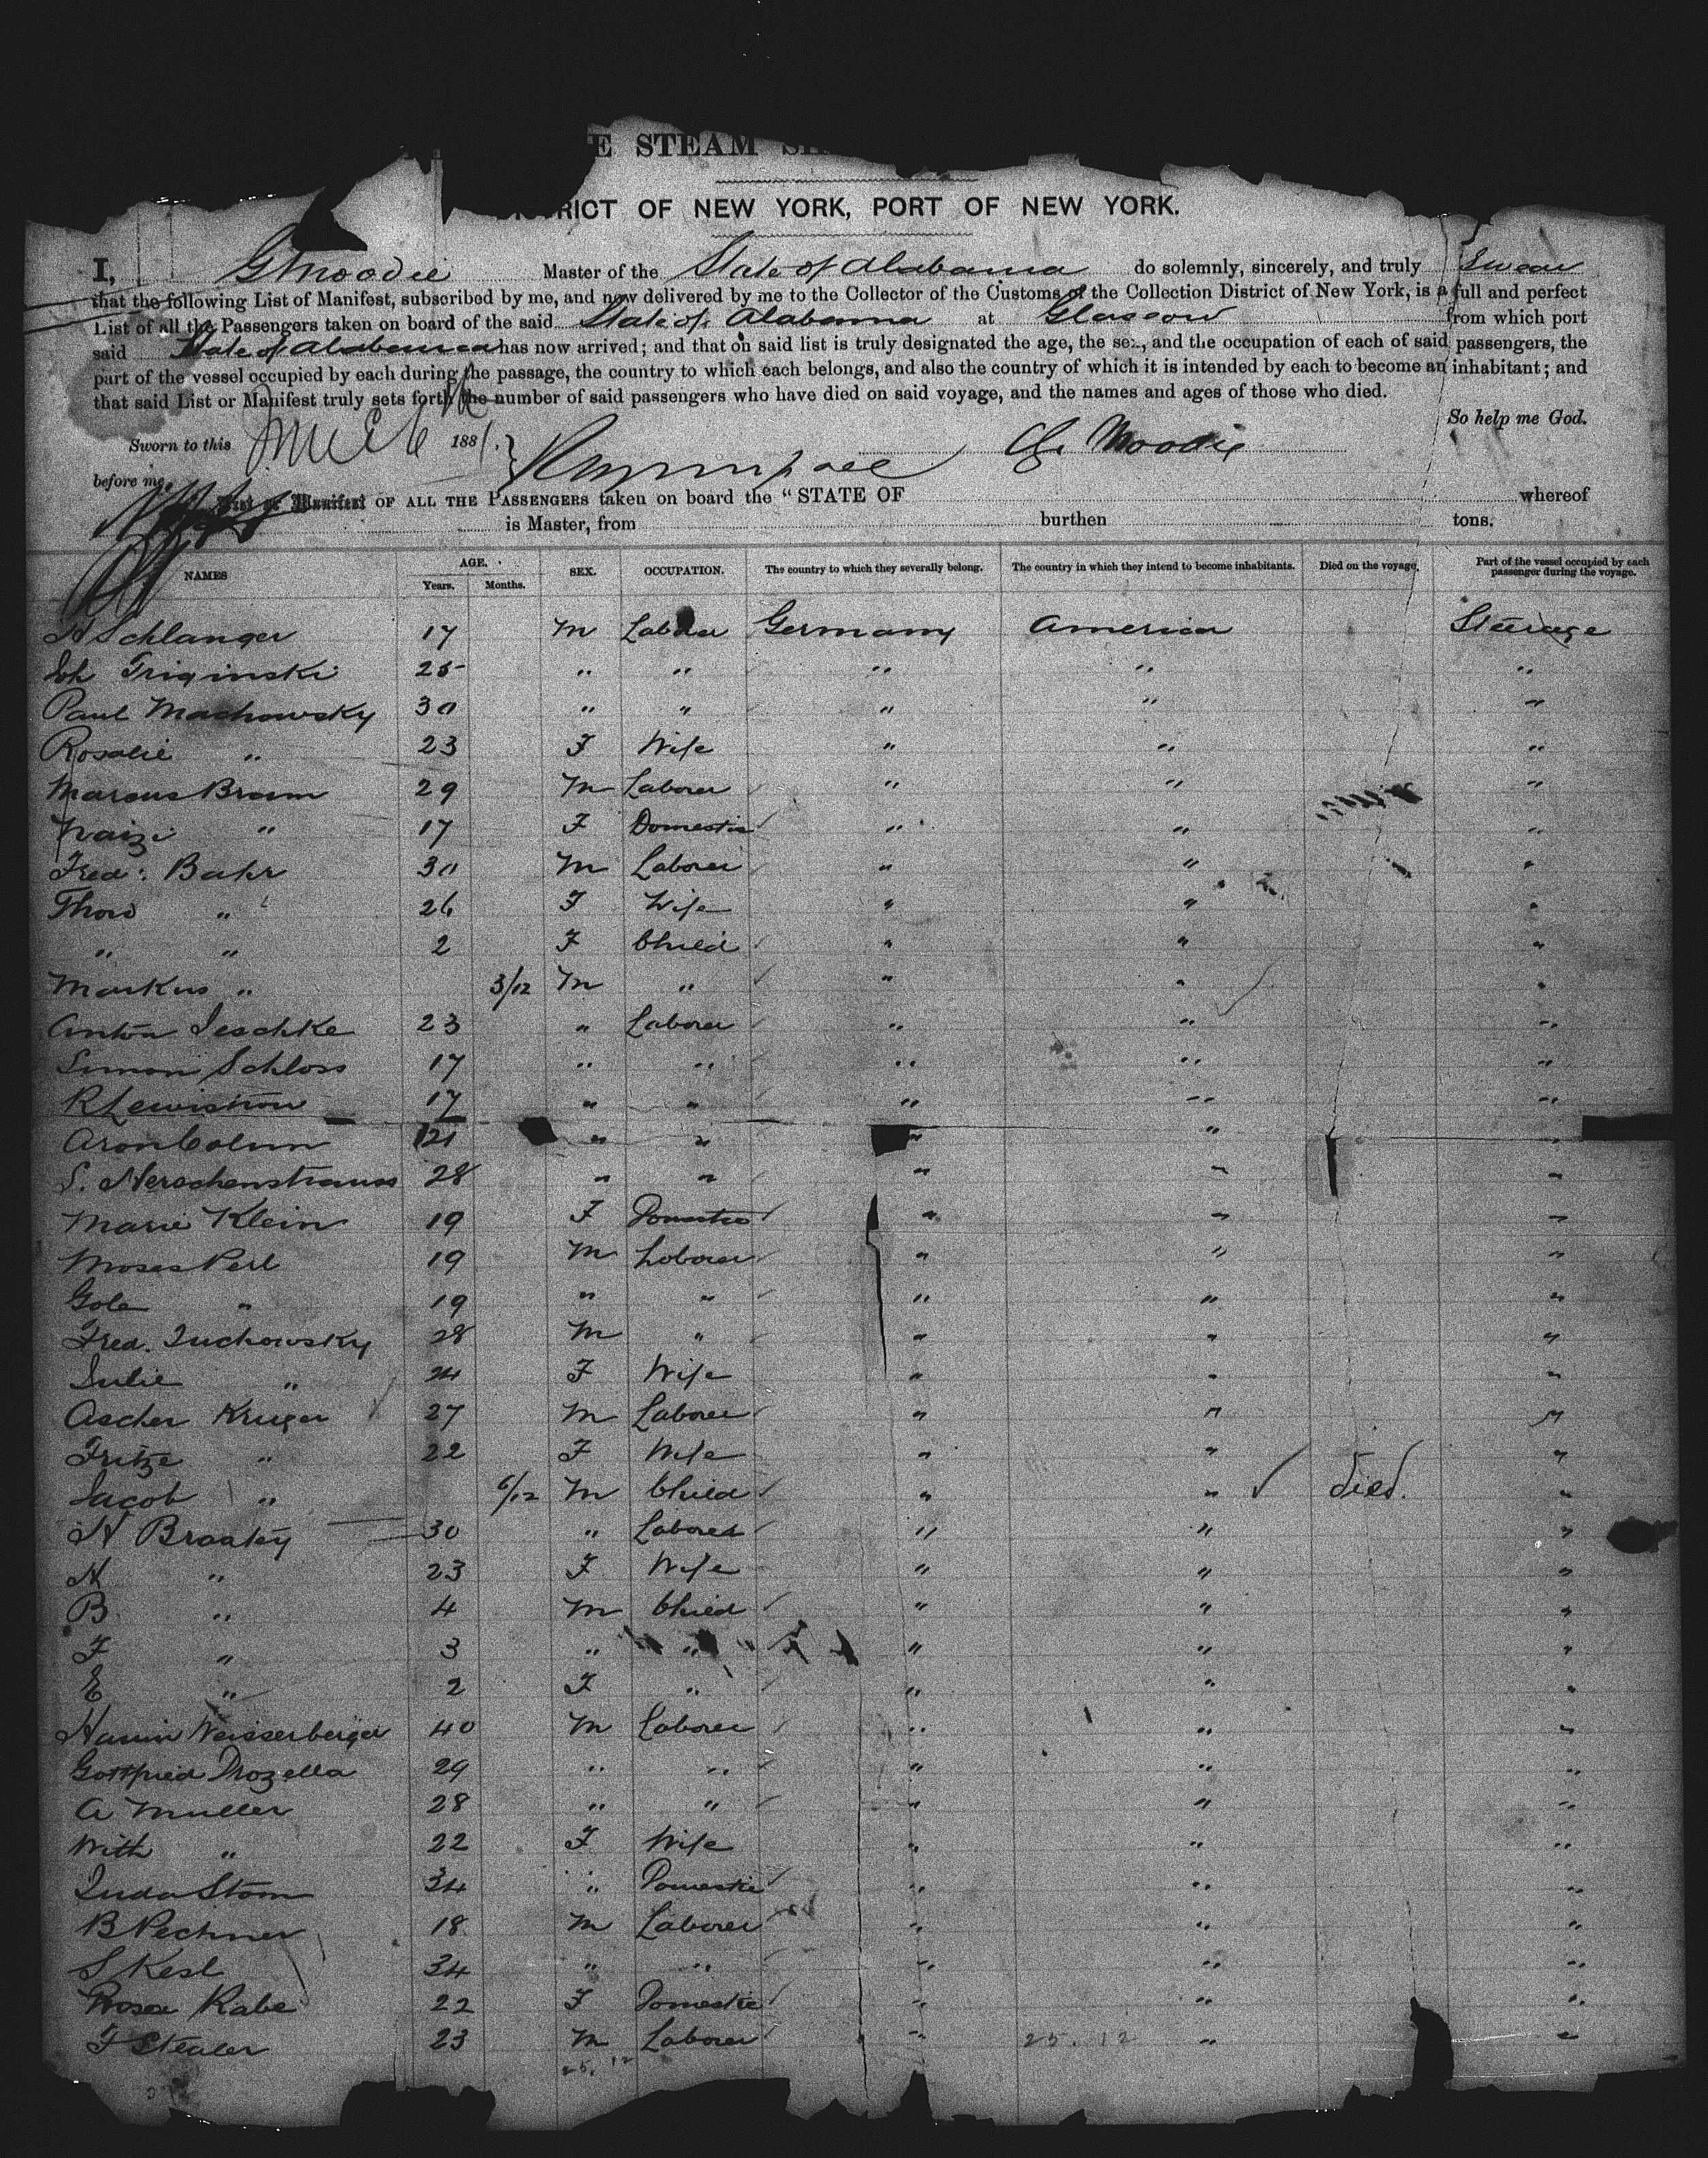 E STEAM
DISTRICT OF NEW YORK, PORT OF NEW YORK.
I, G Moodie Master of the State of Alabama do solemnly, sincerely, and truly Swear
that the following List of Manifest, subscribed by me, and now delivered by me to the Collector of the Customs of the Collection District of New York, is a full and perfect
List of all the Passengers taken on board of the said State of Alabama at Glasgow from which port
said State of Alabama has now arrived; and that on said list is truly designated the age, the sex, and the occupation of each of said passengers, the
part of the vessel occupied by each during the passage, the country to which each belongs, and also the country of which it is intended by each to become an inhabitant; and
that said List or Manifest truly sets forth the number of said passengers who have died on said voyage, and the names and ages of those who died.
So help me God.
Sworn to this June 6 1881. G. Moodie
before me,
List or Manifest OF ALL THE PASSENGERS taken on board the "STATE OF whereof
is Master, from burthen tons.
NAMES AGE. Years. Months. SEX. OCCUPATION. The country to which they severally belong. The country in which they intend to become inhabitants. Died on the voyage. Part of the vessel occupied by each passenger during the voyage.
H Schlanger 17 M Laborer Germany America Steerage
Triginski 25 " " " " "
Paul Machowsky 30 " " " " "
Rosalie " 23 F Wife " " "
Marcus Bram 29 M Laborer " " "
Naizi " 17 F Domestic " " "
Fred: Bahr 30 M Laborer " " "
" 26 F Wife " " "
" " 2 F Child " " "
Markus " 3/12 M " " " "
Anton Jeschke 23 " Laborer " " "
Simon Schloss 17 " " " " "
R Lewishon 17 " " " " "
Aron Cohn 21 " " " " "
S. Herschenstrauss 28 " " " " "
Marie Klein 19 F Domestic " " "
Moses Perl 19 M Laborer " " "
Gole " 19 " " " " "
Fred. Tuchowsky 28 M " " " "
Julie " 24 F Wife " " "
Ascher Kruger 27 M Laborer " " "
Fritze " 22 F Wife " " "
Jacob " 6/12 M Child " " Died. "
H Braaty 30 " Laborer " " "
H " 23 F Wife " " "
B " 4 M Child " " "
F " 3 " " " " "
E " 2 F " " " "
Weisserberger 40 M Laborer " " "
Gottfried Drozella 29 " " " " "
A Muller 28 " " " " "
With " 22 F Wife " " "
Juda Stom 34 " Domestic " " "
B Pechner 18 M Laborer " " "
S Kesl 34 " " " " "
Rosa Rabe 22 F Domestic " " "
F Stealer 23 M Laborer " 25.12 " "
25.12